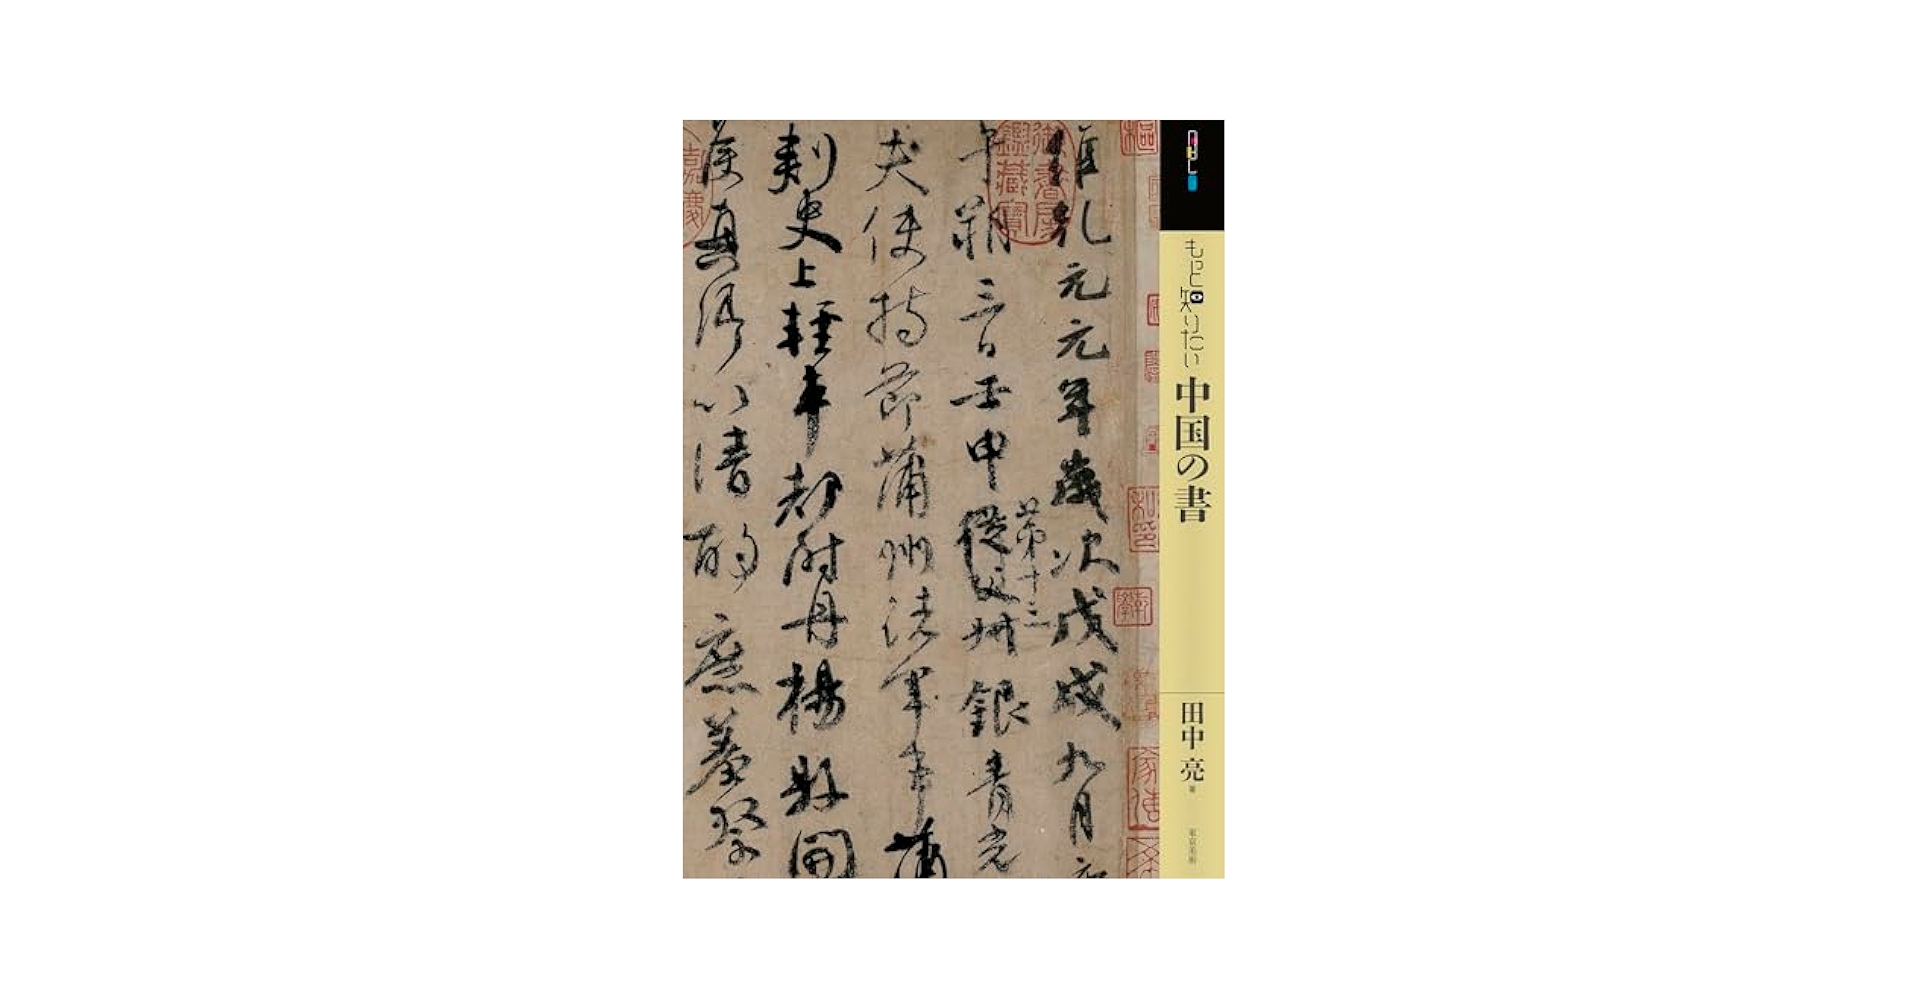 もっと知りたい
中国の書
田中 亮 著
東京美術
維乾元元年歲次戊戌九月庚
午朔三日壬申從父銀青光
第十三
夫使持節蒲州諸軍事蒲
刺史上輕車都尉丹楊縣開
侯真卿以清酌庶羞祭
御書房
鑑藏寶
嘉慶